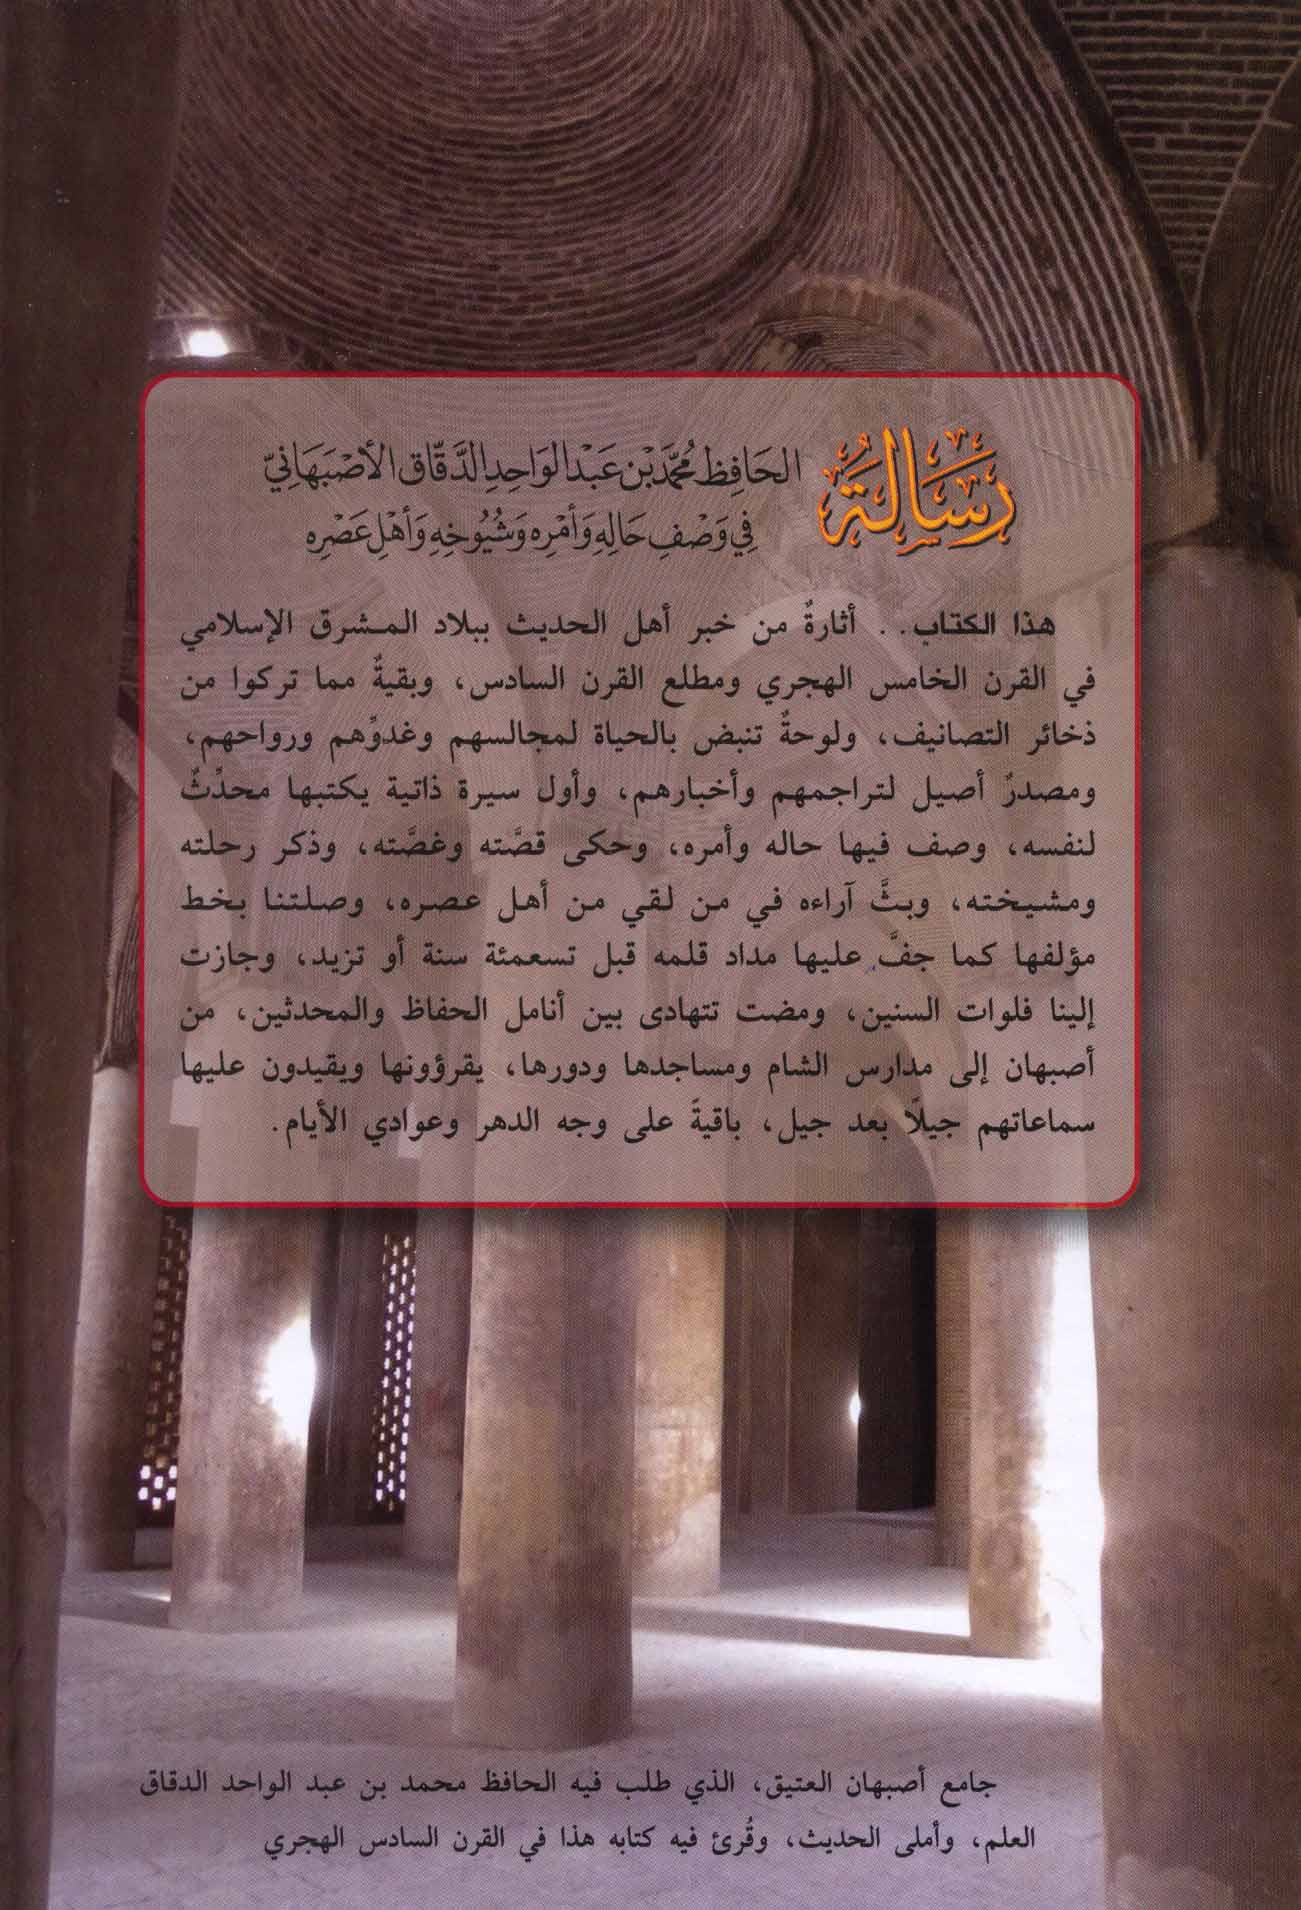 رِسَالَةُ
الحَافِظ مُحَمَّد بْن عَبْد الوَاحِدِ الدَّقَّاق الأَصْبَهَانِيّ
فِي وَصْفِ حَالِهِ وَأَمْرِه وَشُيُوخِهِ وَأَهْلِ عَصْرِه
هذا الكتاب.. أثارةٌ من خبر أهل الحديث ببلاد المشرق الإسلامي
في القرن الخامس الهجري ومطلع القرن السادس، وبقيةٌ مما تركوا من
ذخائر التصانيف، ولوحةٌ تنبض بالحياة لمجالسهم وغدوِّهم ورواحهم،
ومصدرٌ أصيل لتراجمهم وأخبارهم، وأول سيرة ذاتية يكتبها محدِّثٌ
لنفسه، وصف فيها حاله وأمره، وحكى قصَّته وغصَّته، وذكر رحلته
ومشيخته، وبثَّ آراءه في من لقي من أهل عصره، وصلتنا بخط
مؤلفها كما جفَّ عليها مداد قلمه قبل تسعمئة سنة أو تزيد، وجازت
إلينا فلوات السنين، ومضت تتهادى بين أنامل الحفاظ والمحدثين، من
أصبهان إلى مدارس الشام ومساجدها ودورها، يقرؤونها ويقيدون عليها
سماعاتهم جيلًا بعد جيل، باقيةً على وجه الدهر وعوادي الأيام.
جامع أصبهان العتيق، الذي طلب فيه الحافظ محمد بن عبد الواحد الدقاق
العلم، وأملى الحديث، وقُرئ فيه كتابه هذا في القرن السادس الهجري